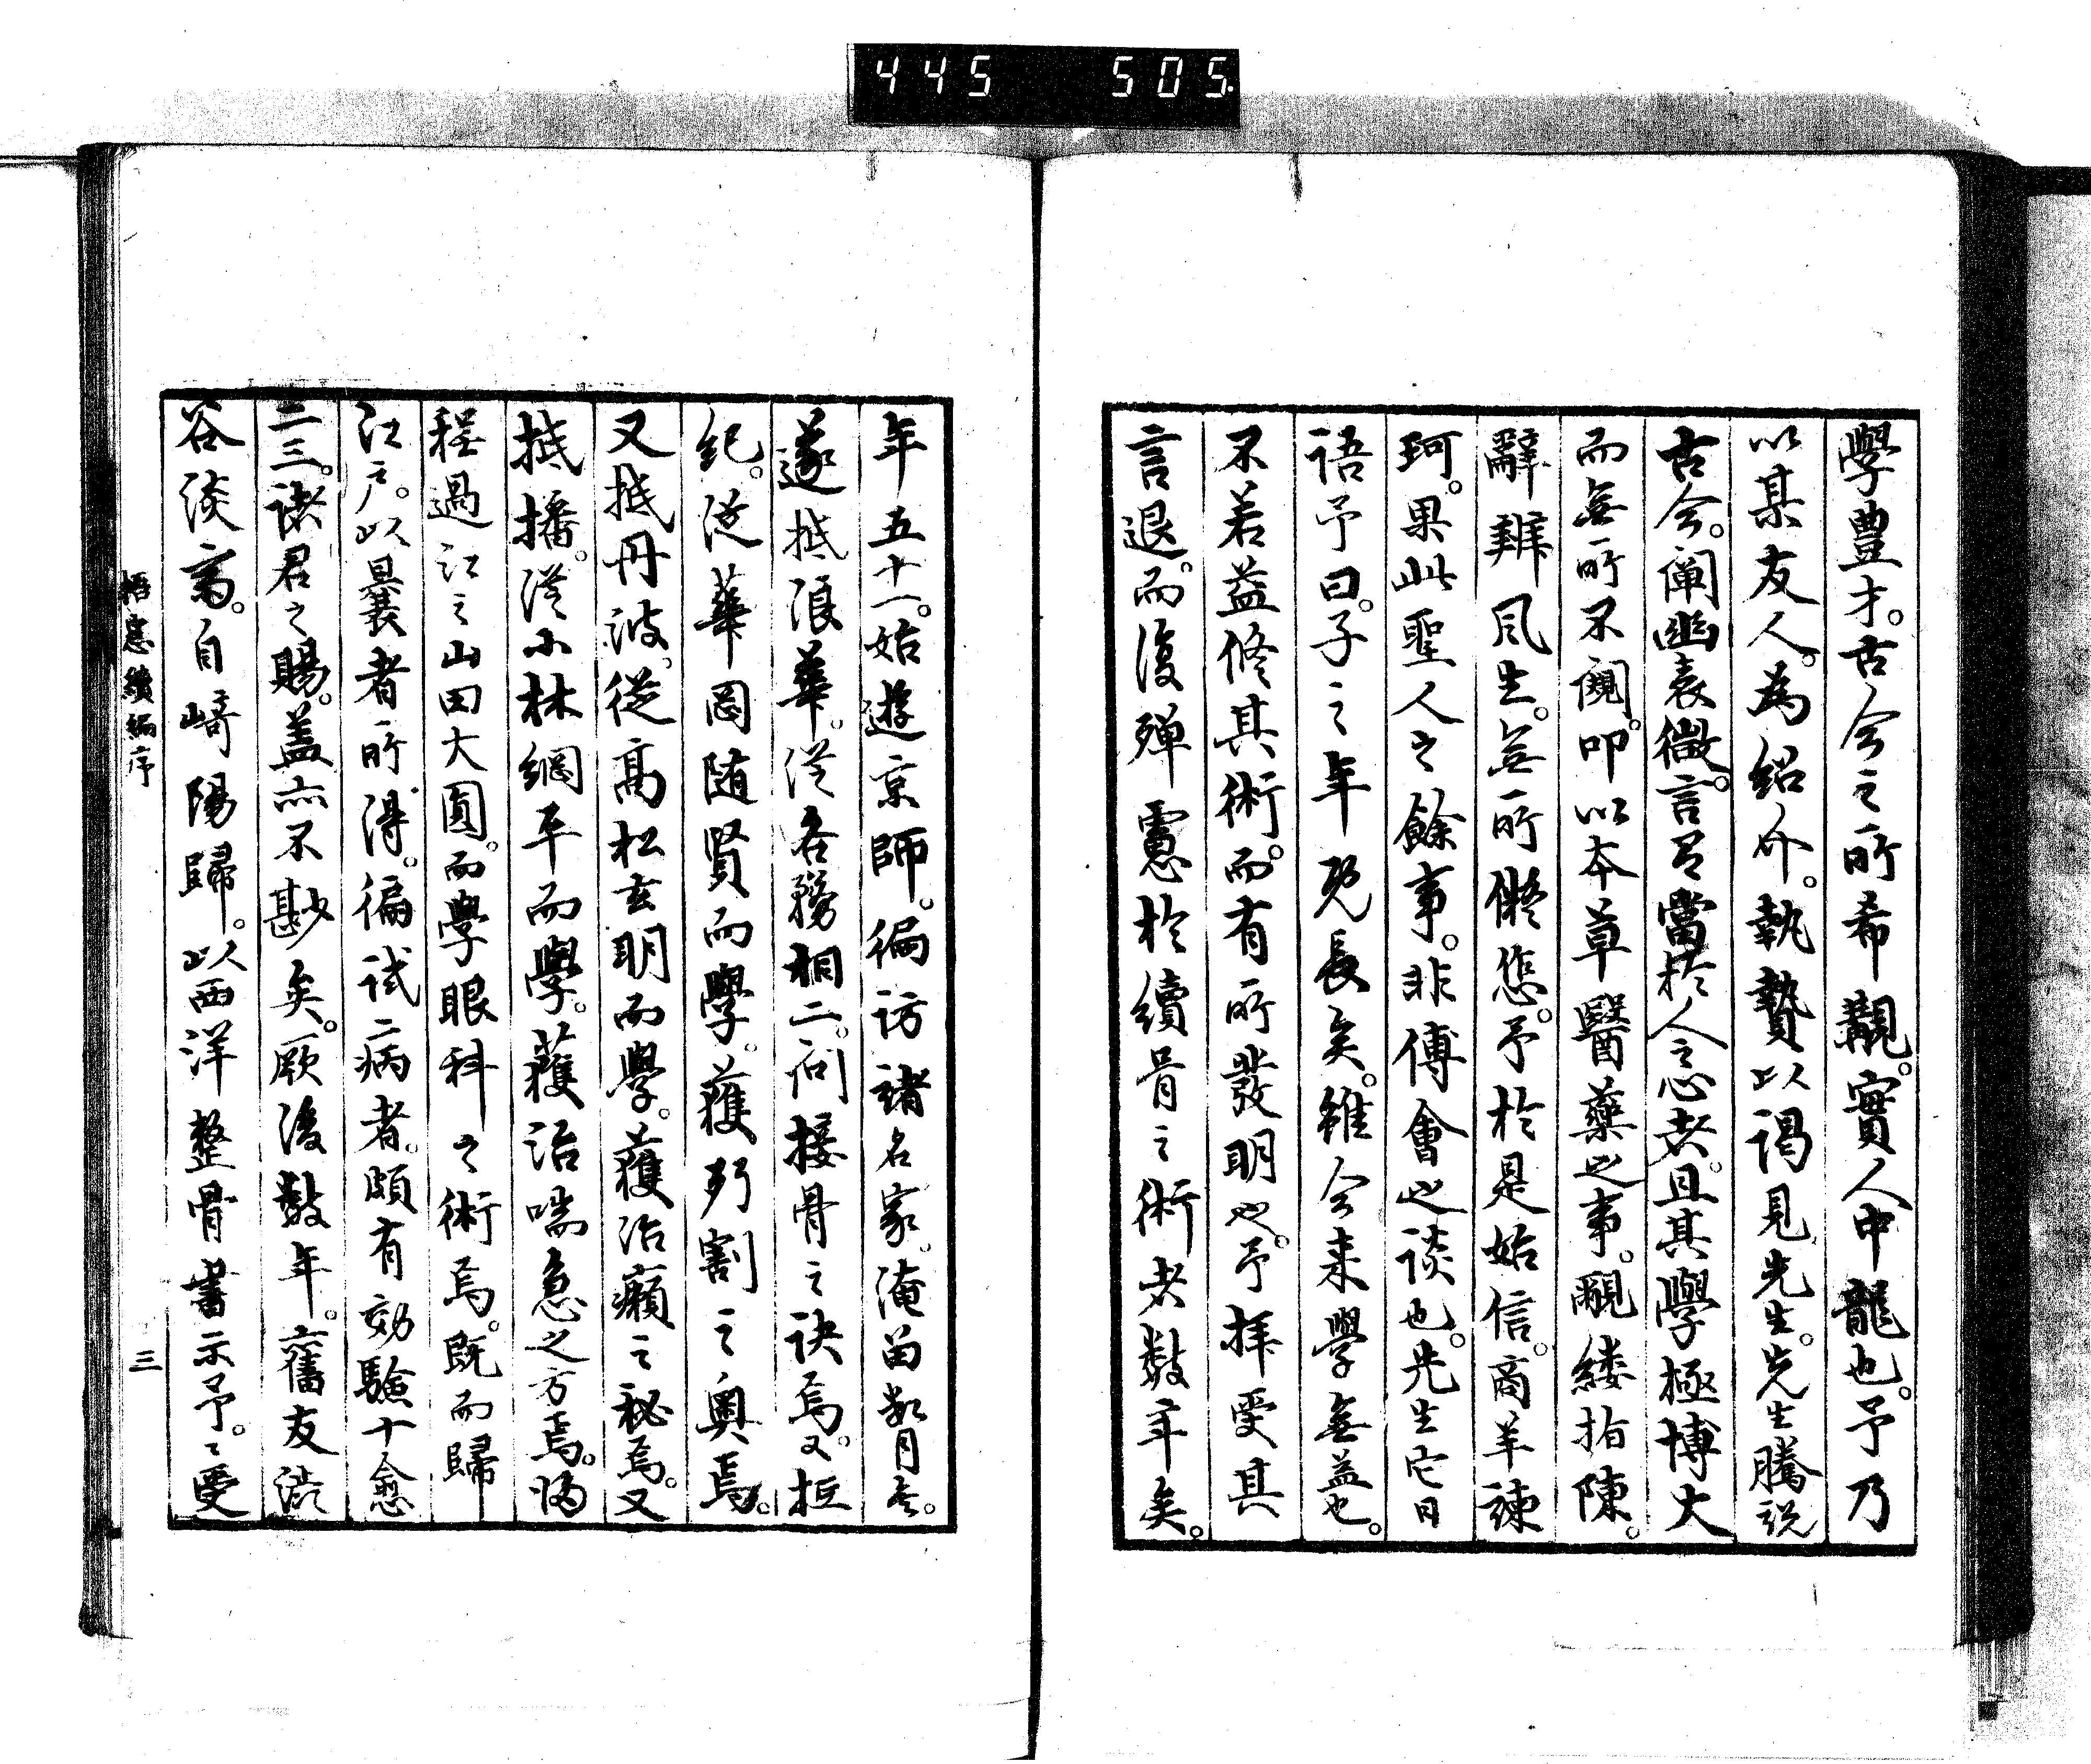 445 505
學豊才。古今之所希覯。實人中龍也。予乃
以某友人。為紹介。執贄以謁見先生。先生騰説
古今。闡幽表微。言々當於人意者。且其學極博大
而無所不闚。叩以本草醫藥之事。覼縷指陳。
辭辨風生。無所儗恣。予於是始信。商羊諫
珂。果此聖人之餘事。非傅會之談也。先生它日
語予曰。子之年既長矣。雖今来學無益也。
不若益修其術。而有所發明也。予拝受其
言退。而復殫慮於續骨之術者數年矣。
年五十一。始遊京師。徧訪諸名家。淹留数月
遂抵浪華。從各務相二。問接骨之訣焉。又抵
紀。從華岡随賢而學。獲刳割之奧焉。
又抵丹波。從高松玄明而學。獲治癩之秘焉。又
抵播。從小林綱平而學。獲治喘急之方焉。帰
程過江之山田大圓。而學眼科之術焉。既而歸
江戸。以曩者所得。徧試二病者。頗有効驗十愈
二三。諸君之賜。盖亦不尠矣。厥後數年。舊友澁
谷淡斎。自﨑陽歸。以西洋整骨書示予。々受
續編序 三